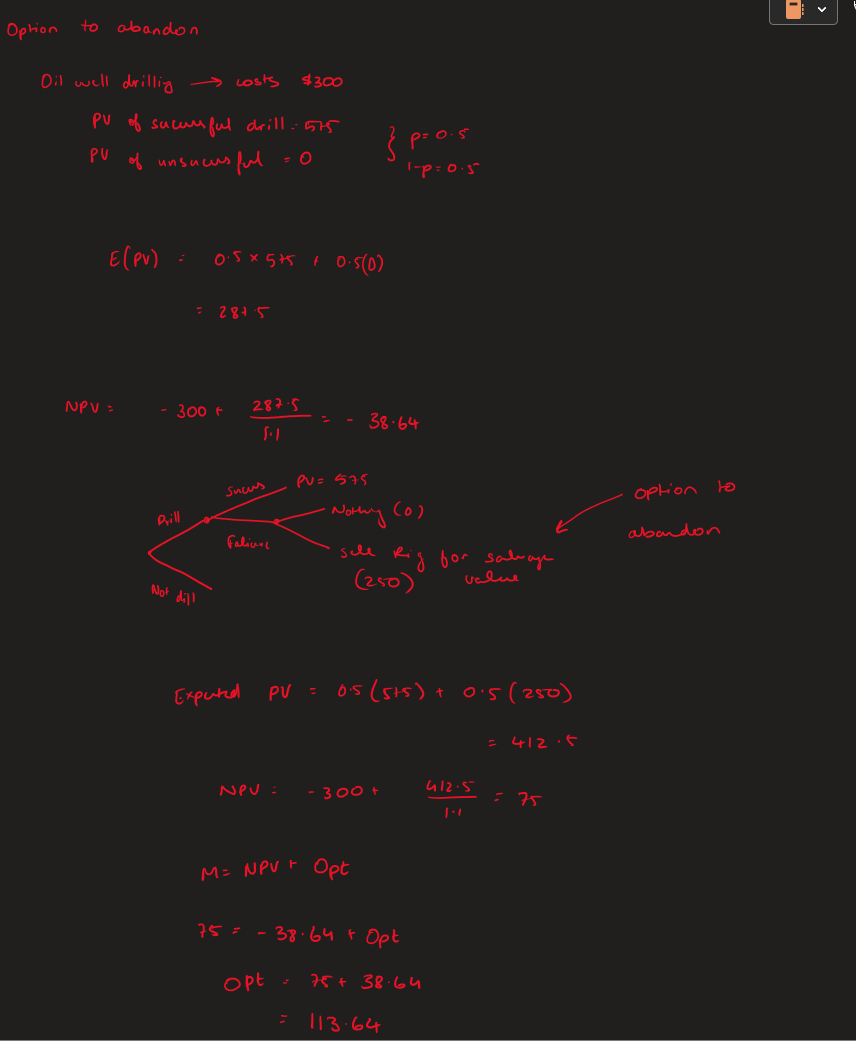 Option to abandon
Oil well drillig → costs $300
PV of successful drill = 575
PV of unsuccessful = 0
} p = 0.5
1-p = 0.5
E(PV) = 0.5 × 575 + 0.5(0)
= 287.5
NPV = - 300 + 287.5 / 1.1 = - 38.64
Drill
Success
PV = 575
Failure
Nothing (0)
Sell Rig for salvage
(250) value
Not dill
option to
abandon
Expected PV = 0.5 (575) + 0.5 (250)
= 412.5
NPV = - 300 + 412.5 / 1.1 = 75
M = NPV + Opt
75 = - 38.64 + Opt
Opt = 75 + 38.64
= 113.64